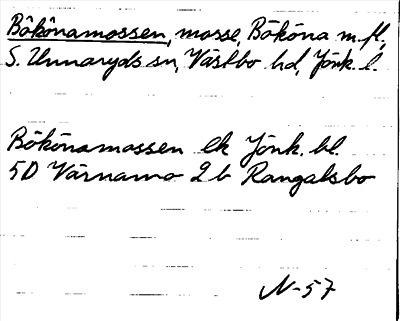 Bökönamossen, mosse, Bököna m.fl.
S. Unnaryds sn, Västbo hd, Jönk. l.
Bökönamossen ek Jönk. bl.
5D Värnamo 2b Rangalsbo
N-57